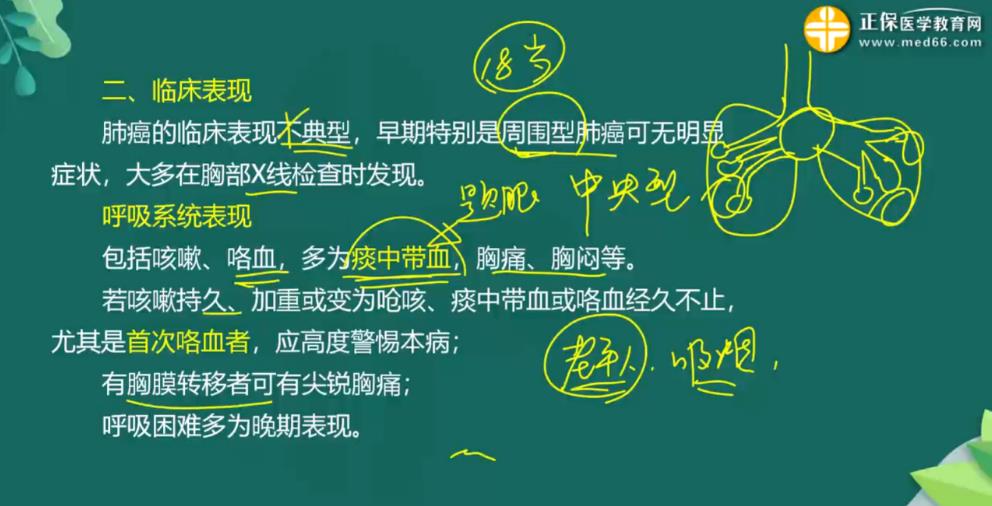 正保医学教育网
www.med66.com
二、临床表现
肺癌的临床表现不典型，早期特别是周围型肺癌可无明显
症状，大多在胸部X线检查时发现。
题眼 中央型
呼吸系统表现
包括咳嗽、咯血，多为痰中带血，胸痛、胸闷等。
若咳嗽持久、加重或变为呛咳、痰中带血或咯血经久不止，
尤其是首次咯血者，应高度警惕本病；
老年人.吸烟，
有胸膜转移者可有尖锐胸痛；
呼吸困难多为晚期表现。